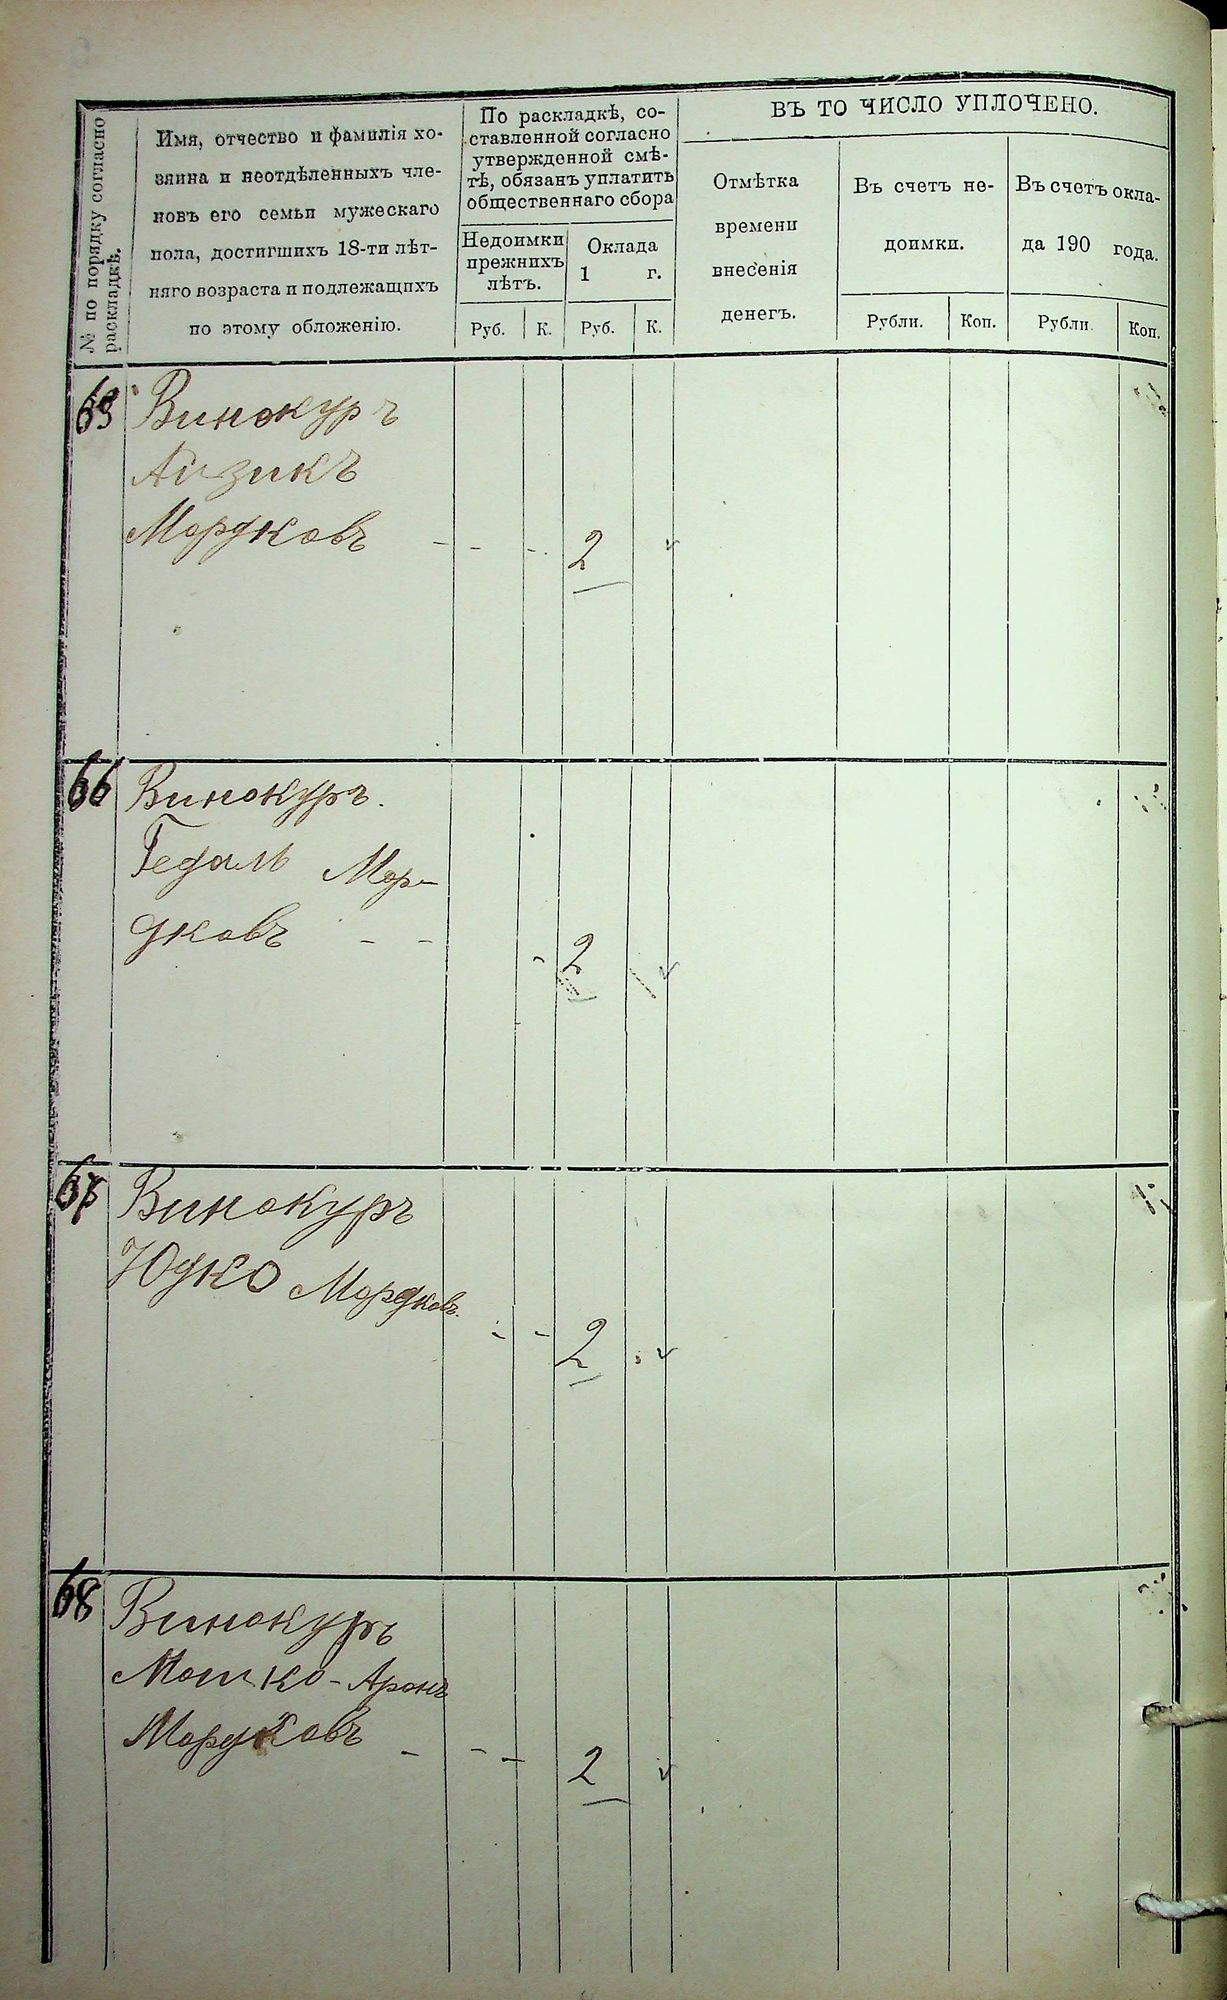 № по порядку согласно
раскладкѣ.
Имя, отчество и фамилія хо-
зяина и неотдѣленныхъ чле-
новъ его семьи мужескаго
пола, достигшихъ 18-ти лѣт-
няго возраста и подлежащихъ
по этому обложенію.
По раскладкѣ, со-
ставленной согласно
утвержденной смѣ-
тѣ, обязанъ уплатить
общественнаго сбора
Недоимки
прежнихъ
лѣтъ.
Оклада
1 г.
Руб. К. Руб. К.
ВЪ ТО ЧИСЛО УПЛОЧЕНО.
Отмѣтка
времени
внесенія
денегъ.
Въ счетъ не-
доимки.
Въ счетъ окла-
да 190 года.
Рубли. Коп. Рубли. Коп.
65 Винокуръ
Айзикъ
Мордковъ - - - 2
66 Винокуръ.
Гедаль Мор-
дковъ - - - 2
67 Винокуръ
Юдко Мордковъ. - - 2
68 Винокуръ
Мошко-Аронъ
Мордковъ - - - 2